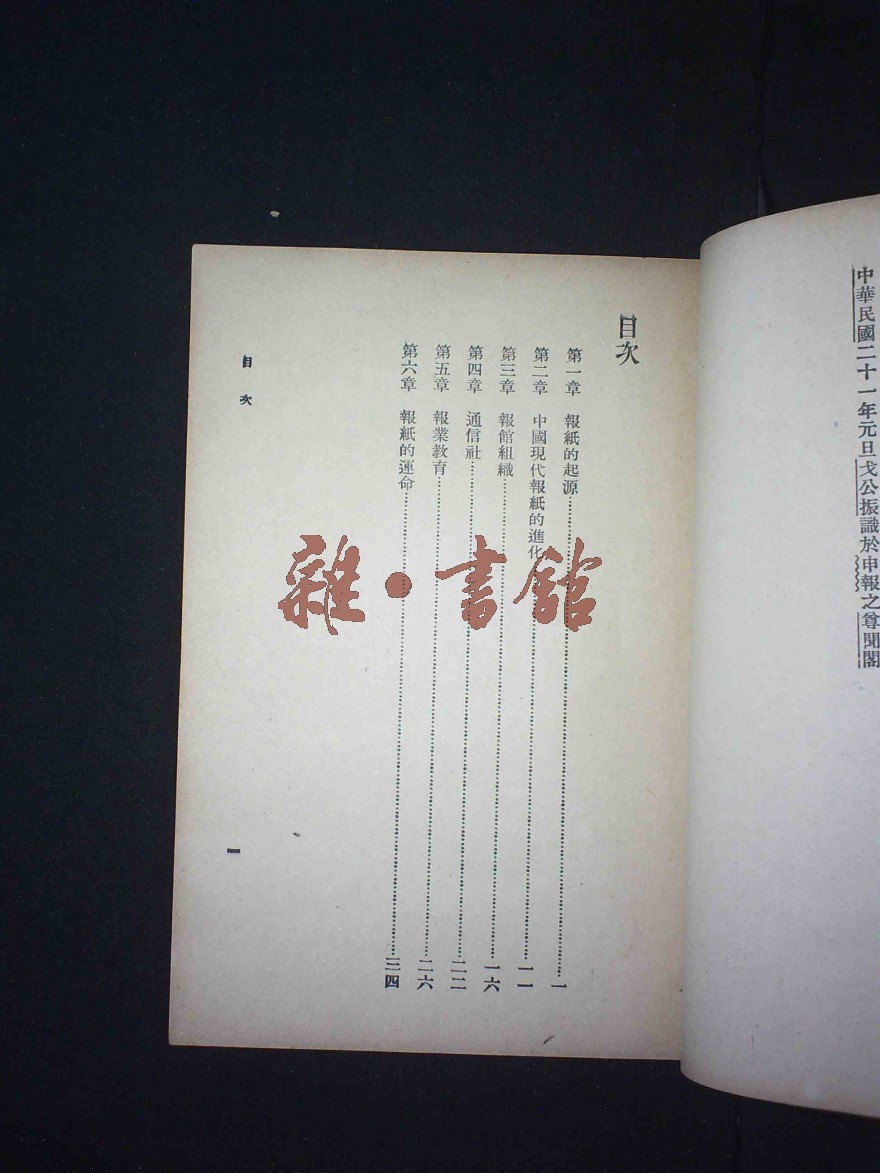 中華民國二十一年元旦戈公振識於申報之尊聞閣
目次
第一章　報紙的起源……一
第二章　中國現代報紙的進化……一一
第三章　報館組織……一六
第四章　通信社……二二
第五章　報業教育……二六
第六章　報紙的運命……三四
目次
一
雜·書館